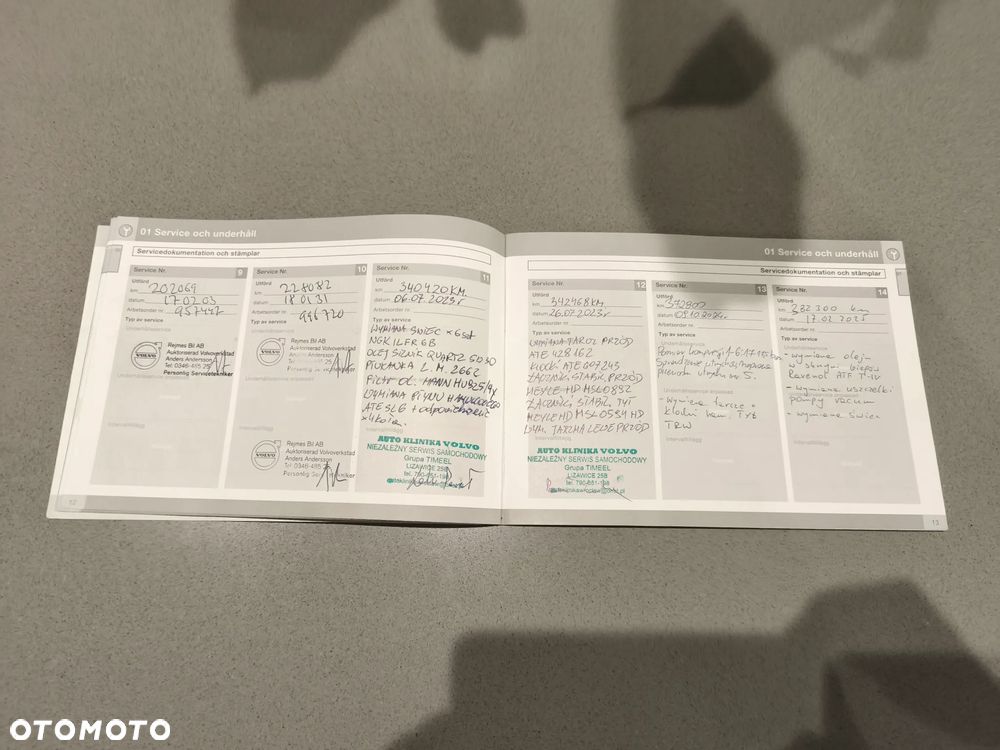 01 Service och underhåll
Servicedokumentation och stämplar
Service Nr. 9
Utförd
km 202069
datum 17 02 03
Arbetsorder nr 957447
Typ av service
Rejmes Bil AB
Auktoriserad Volvoverkstad
Anders Andersson
Tel 0346-485 25
Personlig Servicetekniker
Service Nr. 10
Utförd
km 228082
datum 18 01 31
Arbetsorder nr 996720
Typ av service
Rejmes Bil AB
Auktoriserad Volvoverkstad
Anders Andersson
Personlig Servicetekniker
Rejmes Bil AB
Auktoriserad Volvoverkstad
Anders Andersson
Tel 0346-485 25
Personlig Servicetekniker
Service Nr. 11
Utförd
km 340420KM
datum 06.07.2023r
Arbetsorder nr
Typ av service
WYMIANA ŚWIEC x 6szt
NGK ILFR 6B
OLEJ SILNIK QUARTZ 5030
PŁUKANKA L.M. 2662
Filtr ol. MANN HU925/4y
WYMIANA PŁYNU HAMULCOWEGO
ATE SL6 + odpowietrzenie
x4 koła.
AUTO KLINIKA VOLVO
NIEZALEŻNY SERWIS SAMOCHODOWY
Grupa TIMEEL
LIZAWICE 25B
12
01 Service och underhåll
Servicedokumentation och stämplar
Service Nr. 12
Utförd
km 342468KM
datum 26.07.2023r
Arbetsorder nr
Typ av service
WYMIANA TARCZ PRZÓD
ATE 428162
KLOCKI ATE 607243
ŁĄCZNIK STABIL. PRZÓD
MEYLE HD MSL0892
ŁĄCZNIK STABIL. TYŁ
MEYLE HD MSL0534 HD
Intervalltillägg
AUTO KLINIKA VOLVO
NIEZALEŻNY SERWIS SAMOCHODOWY
Grupa TIMEEL
LIZAWICE 25B
tel. 790-681-198
Service Nr. 13
Utförd
datum 09.10.2024r.
Arbetsorder nr
Typ av service
- wymiana tarcze +
klocki ham. Tył
TRW
Intervalltillägg
Service Nr. 14
Utförd
km 382 300 km
datum 17.02 2025
Arbetsorder nr
Typ av service
- wymiana oleju
w skrzyni biegów
Ravenol ATF T-IV
- wymiana uszczelki
pompy vacum
- wymiana świec
Intervalltillägg
13
OTOMOTO